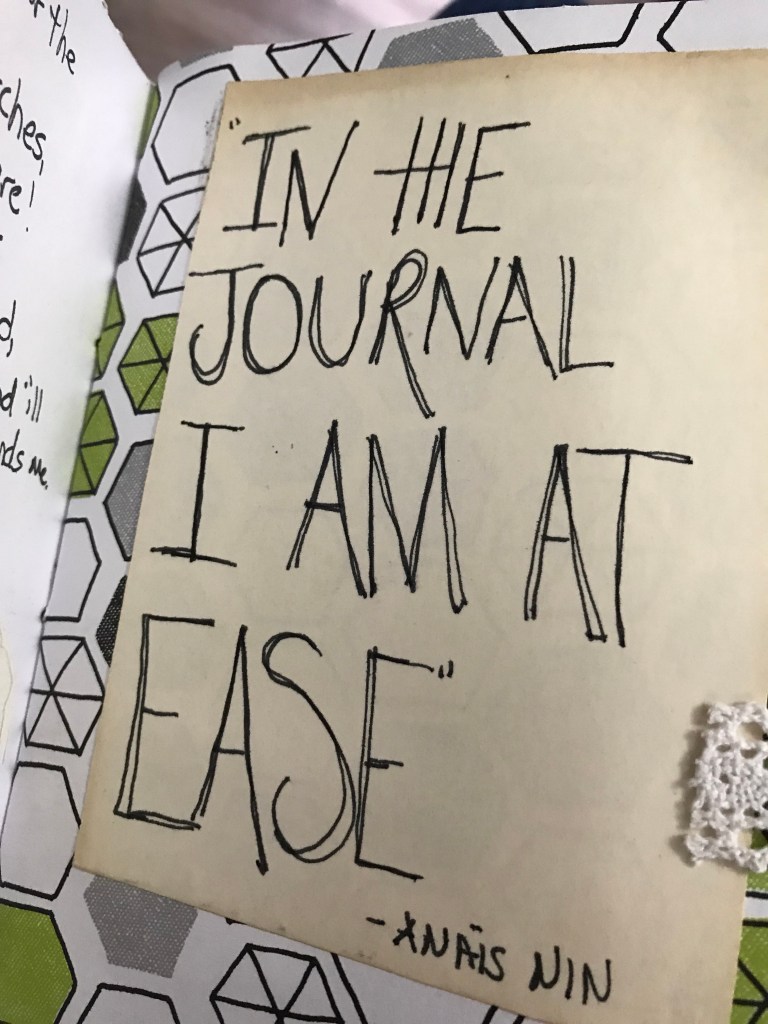 the
ches,
re!
d,
d ill
nds me.
"IN THE
JOURNAL
I AM AT
EASE"
-ANAÏS NIN